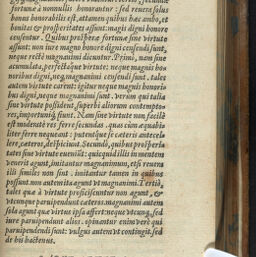 fortunæ à nonnullis honorantur: sed reuera solus
bonus honorabilis est, attamen quibus hæc ambo, et
bonitas & prosperitates assunt: magis digni honore
censentur. Quibus prospera fortuna, sine virtute
assunt: non iure magno honore digni censendi sunt,
neque rectè magnanimi dicuntur. Primi, nam sine
acumulata, perfectáque virtute: neque magnis ho
noribus digni, neq; magnanimi censendi sunt. tales
autem virtute carent: igitur neque magnis honori
bus digni, neque magnanimi sunt. verùm qui talia
sine virtute possident, superbi aliorum contempto=
res, importuniq́; sunt. Nam sine virtute non facilè
est moderatè res ferre secundas. quas cùm æquabi=
liter ferre nequeant: putentque se cæteris antecel=
lere, cæteros, despiciunt. Secundi, quibus prosperi=
tates sine virtute euenêre: quicquid illis in mentem
venerit agunt, imitantur magnanimum, etsi reuera
illi similes non sint. imitantur tamen in quibus
possunt non autem ita agunt vt magnanimi. Tertiò,
tales quæ à virtute proficiscuntur non agunt, &
vtcunque paruipendunt cæteros. magnanimi autem
sola agunt quæ virtus ipsa affert: neque vtcunq; sed
iure paruipendunt alios. opinantur enim verè qui
paruipendendi sunt: vulgus autem vt contingit. sed
de his hactenus.